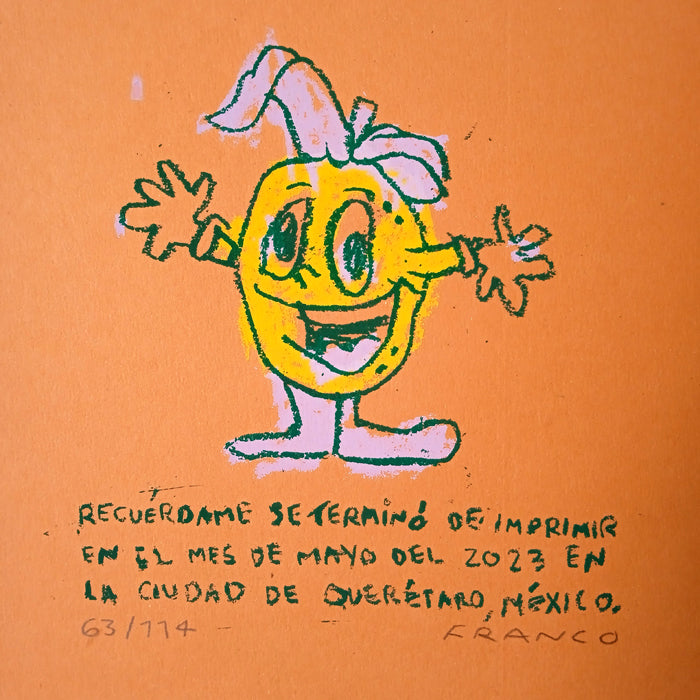 RECUÉRDAME SE TERMINÓ DE IMPRIMIR
EN EL MES DE MAYO DEL 2023 EN
LA CIUDAD DE QUERÉTARO, MÉXICO.
63/114 FRANCO